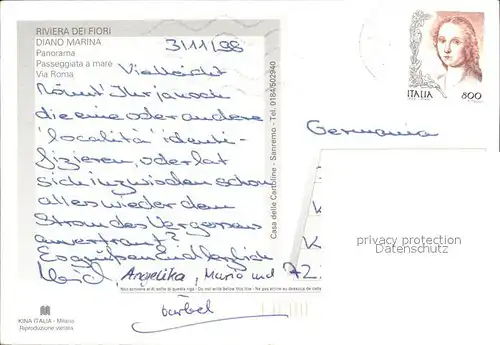 RIVIERA DEI FIORI
DIANO MARINA
Panorama
Passeggiata a mare
Via Roma
3/11/98
Vielleicht
könnt Ihr ja noch
die eine oder andere
"località" identi-
fizieren, oder hat
sich inzwischen schon
alles wieder dem
Strom des Vergessens
anvertraut?
Es grüßen Euch herzlich
Angelika, Mario und
Bärbel
Non scrivere al di sotto di questa riga - Do not write below this line - Ne pas écrire au dessous de cette
KINA ITALIA - Milano
Riproduzione vietata
Casa delle Cartoline - Sanremo - Tel. 0184/502940
ITALIA
800
Germania
72
privacy protection
Datenschutz